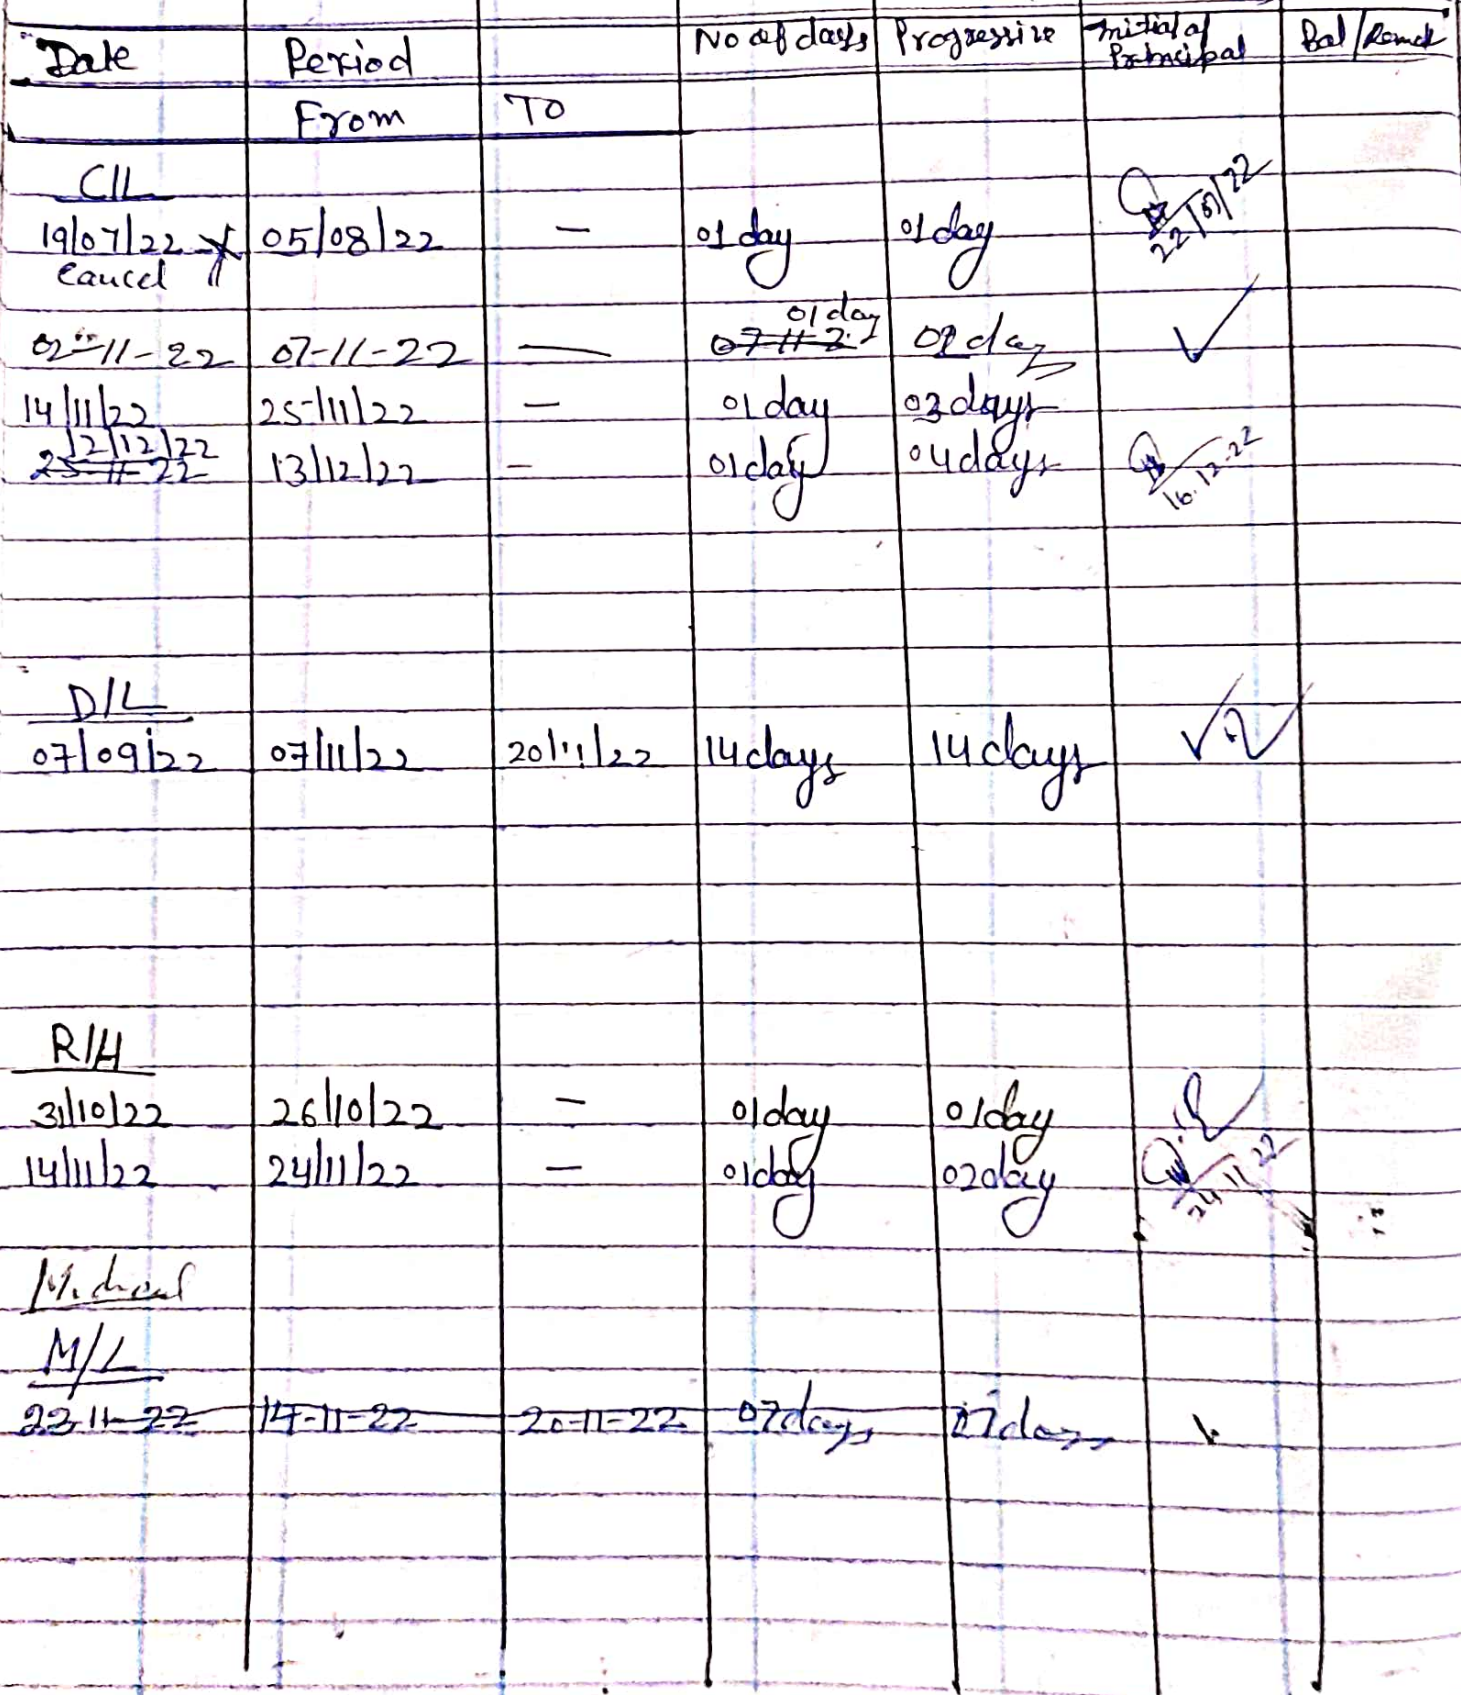 Date Period No of days Progressive Initial of Principal Bal/Remark
From TO
C/L
19/07/22 05/08/22 — 01 day 01 day 22/
Cancel
01 day
02-11-22 07-11-22 — 07-11-2 02 day
14/11/22 25/11/22 — 01 day 03 days
12/12/22
25-11-22 13/12/22 — 01 day 04 days 16.12.22
D/L
07/09/22 07/11/22 20/11/22 14 days 14 days
R/H
31/10/22 26/10/22 — 01 day 01 day
14/11/22 24/11/22 — 01 day 02 day 24 11 22
Medical
M/L
22-11-22 14-11-22 20-11-22 07 days 07 days